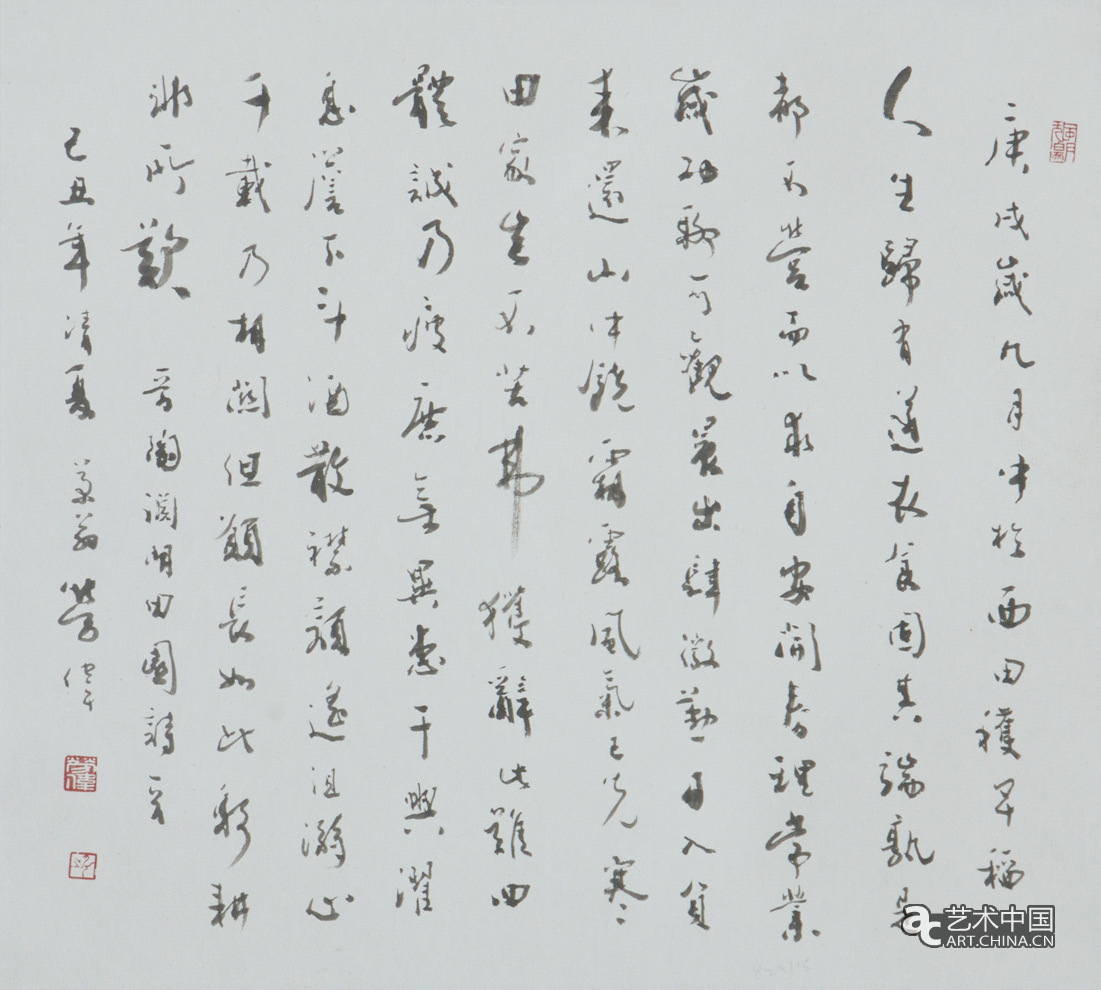 庚戌歲九月中於西田穫早稻
人生歸有道衣食固其端孰是
都不營而以求自安開春理常業
歲功聊可觀晨出肆微勤日入負
耒還山中饒霜露風氣已先寒
田家豈不苦弗獲辭此難四
體誠乃疲庶無異患干盥濯
息簷下斗酒散襟顏遙沮溺心
千載乃相關但願長如此躬耕
非所歎 晉陶淵明田園詩一首
己丑年清夏 翁勞偉
艺术中国
ART.CHINA.CN